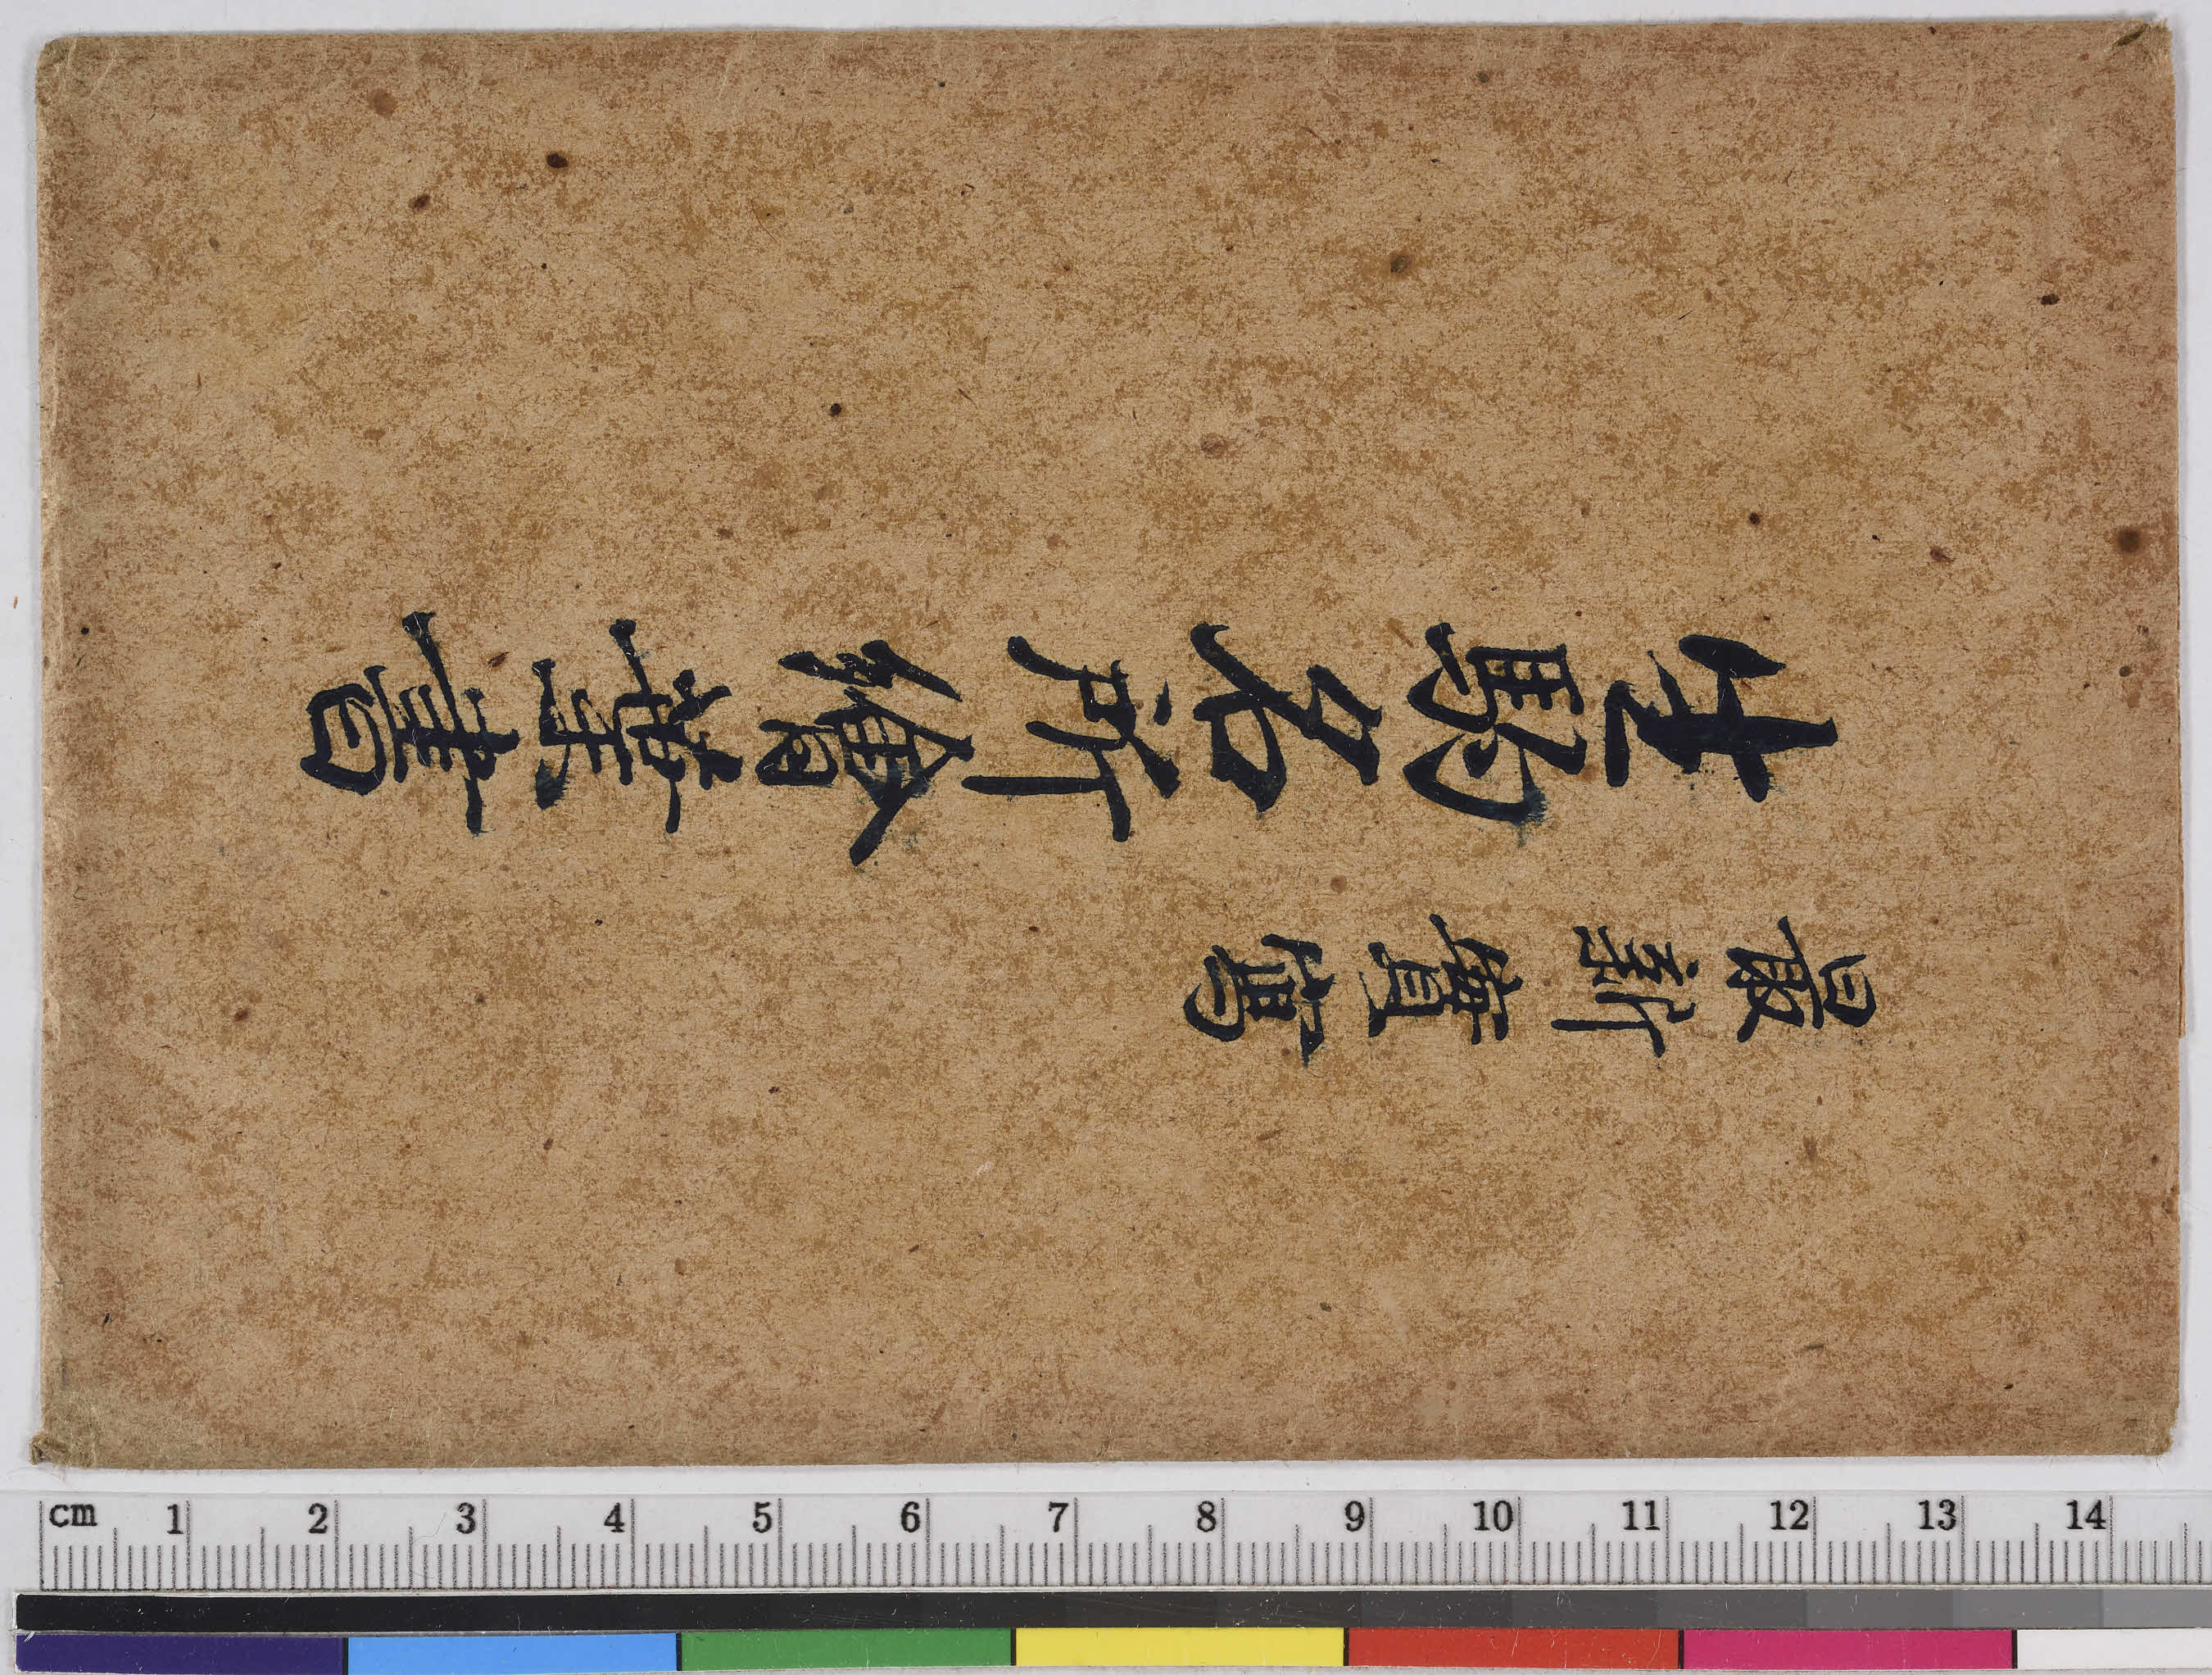 最新實寫
生駒名所繪葉書
cm 1 2 3 4 5 6 7 8 9 10 11 12 13 14